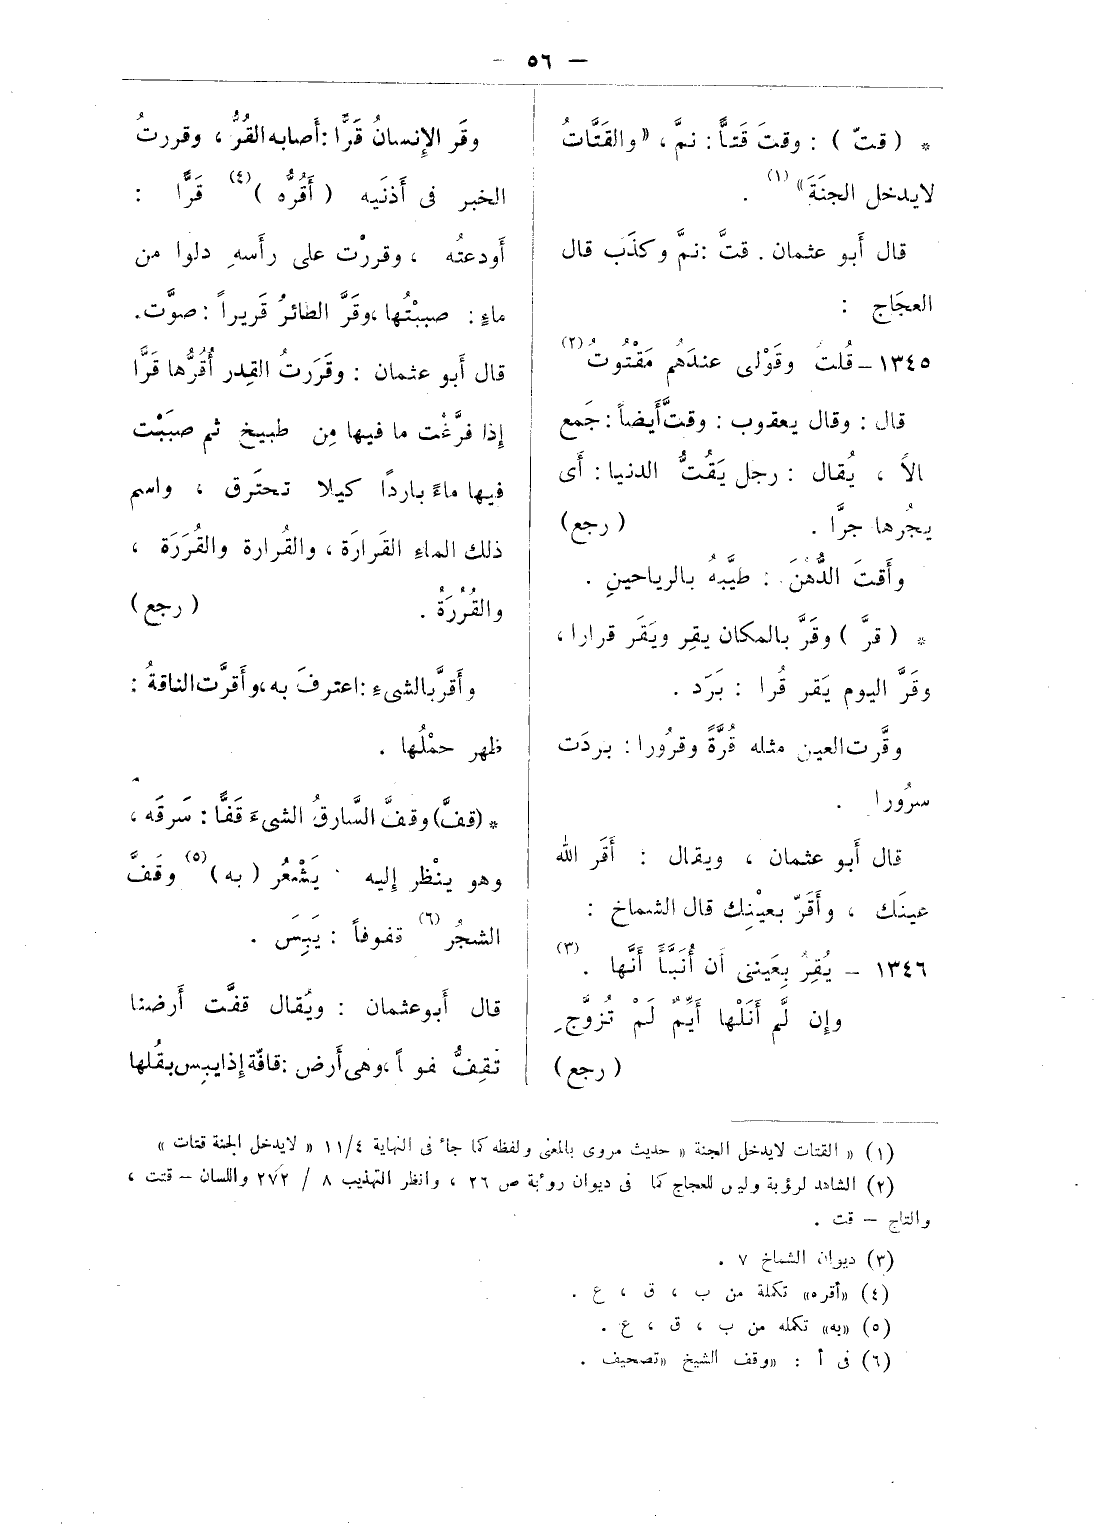 — ٥٦ —
* ( قتّ ) : وقتَ قَتاًّ : نمَّ ، «والقَتَّاتُ
لايدخل الجنَةَ» (١) .
قال أَبو عثمان . قتَّ : نمَّ وكذَب قال
العجَاج :
١٣٤٥ – قُلتُ وقَوْلى عندَهُم مَقْتُوتُ (٢)
قال : وقال يعقوب : وقتَّ أَيضاً : جَمع
الاً ، يُقال : رجل يَقُتُّ الدنيا : أَى
يجُرها جرًّا . ( رجع )
وأَقتَ الدُّهْنَ : طيَّبهُ بالرياحينِ .
* ( قرَّ ) وقَرَّ بالمكان يقِر ويَقَر قرارا ،
وقَرَّ اليوم يَقر قُرا : بَرَد .
وقَّرت العين مثله قُرَّةً وقرُورا : بردَت
سرُورا .
قال أَبو عثمان ، ويقال : أَقَر الله
عينَك ، وأَقَرّ بعيْنِك قال الشماخ :
١٣٤٦ – يُقِرُ بِعَينى أَن أُنَبَّأَ أَنَّها . (٣)
وإِن لَّم أَنَلْها أَيِّمٌ لَمْ تُزوَّجِ
( رجع )
وقَر الإِنسانُ قَرًّا : أَصابه القُرُّ ، وقررتُ
الخبر فى أَذنَيه ( أَقُرُّه ) (٤) قَرًّا :
أَودعتُه ، وقررْت على رأسهِ دلوا من
ماءٍ : صببْتُها ، وقَرَّ الطائرُ قَريراً : صوَّت .
قال أَبو عثمان : وقَرَرتُ القِدر أَقُرُّها قَرًّا
إِذا فرَّغْت ما فيها مِن طبيخ ثم صبَبْت
فيها ماءً بارداً كيلا تحتَرق ، واسم
ذلك الماءِ القَرارَة ، والقُرارة والقُرَرَة ،
والقُرُرَةُ . ( رجع )
وأَقرَّ بالشىءِ : اعترفَ به ، وأَقرَّت الناقةُ :
ظهر حمْلُها .
* (قفَّ) وقفَّ السَّارقُ الشىءَ قَفًّا : سَرقَه ،
وهو ينْظر إِليه يَشْعُر ( به ) (٥) وقَفَّ
الشجُر (٦) قفوفاً : يَبِسَ .
قال أَبوعثمان : ويُقال قفَّت أَرضنا
تَقِفُّ فو اً ، وهى أَرض : قافّة إِذا يبِس بقْلها
(١) « القتات لايدخل الجنة « حديث مروى بالمعنى ولفظه كما جاء فى النهاية ١١/٤ « لايدخل الجنة قتات »
(٢) الشاهد لرؤبة وليس للعجاج كما فى ديوان روءبة ص ٢٦ ، وانظر التهذيب ٨ / ٢٧٢ واللسان – قتت ،
والتاج – قت .
(٣) ديوان الشماخ ٧ .
(٤) «أقره» تكملة من ب ، ق ، ع .
(٥) «به» تكمله من ب ، ق ، ع .
(٦) فى أ : «وقف الشيخ «تصحيف .